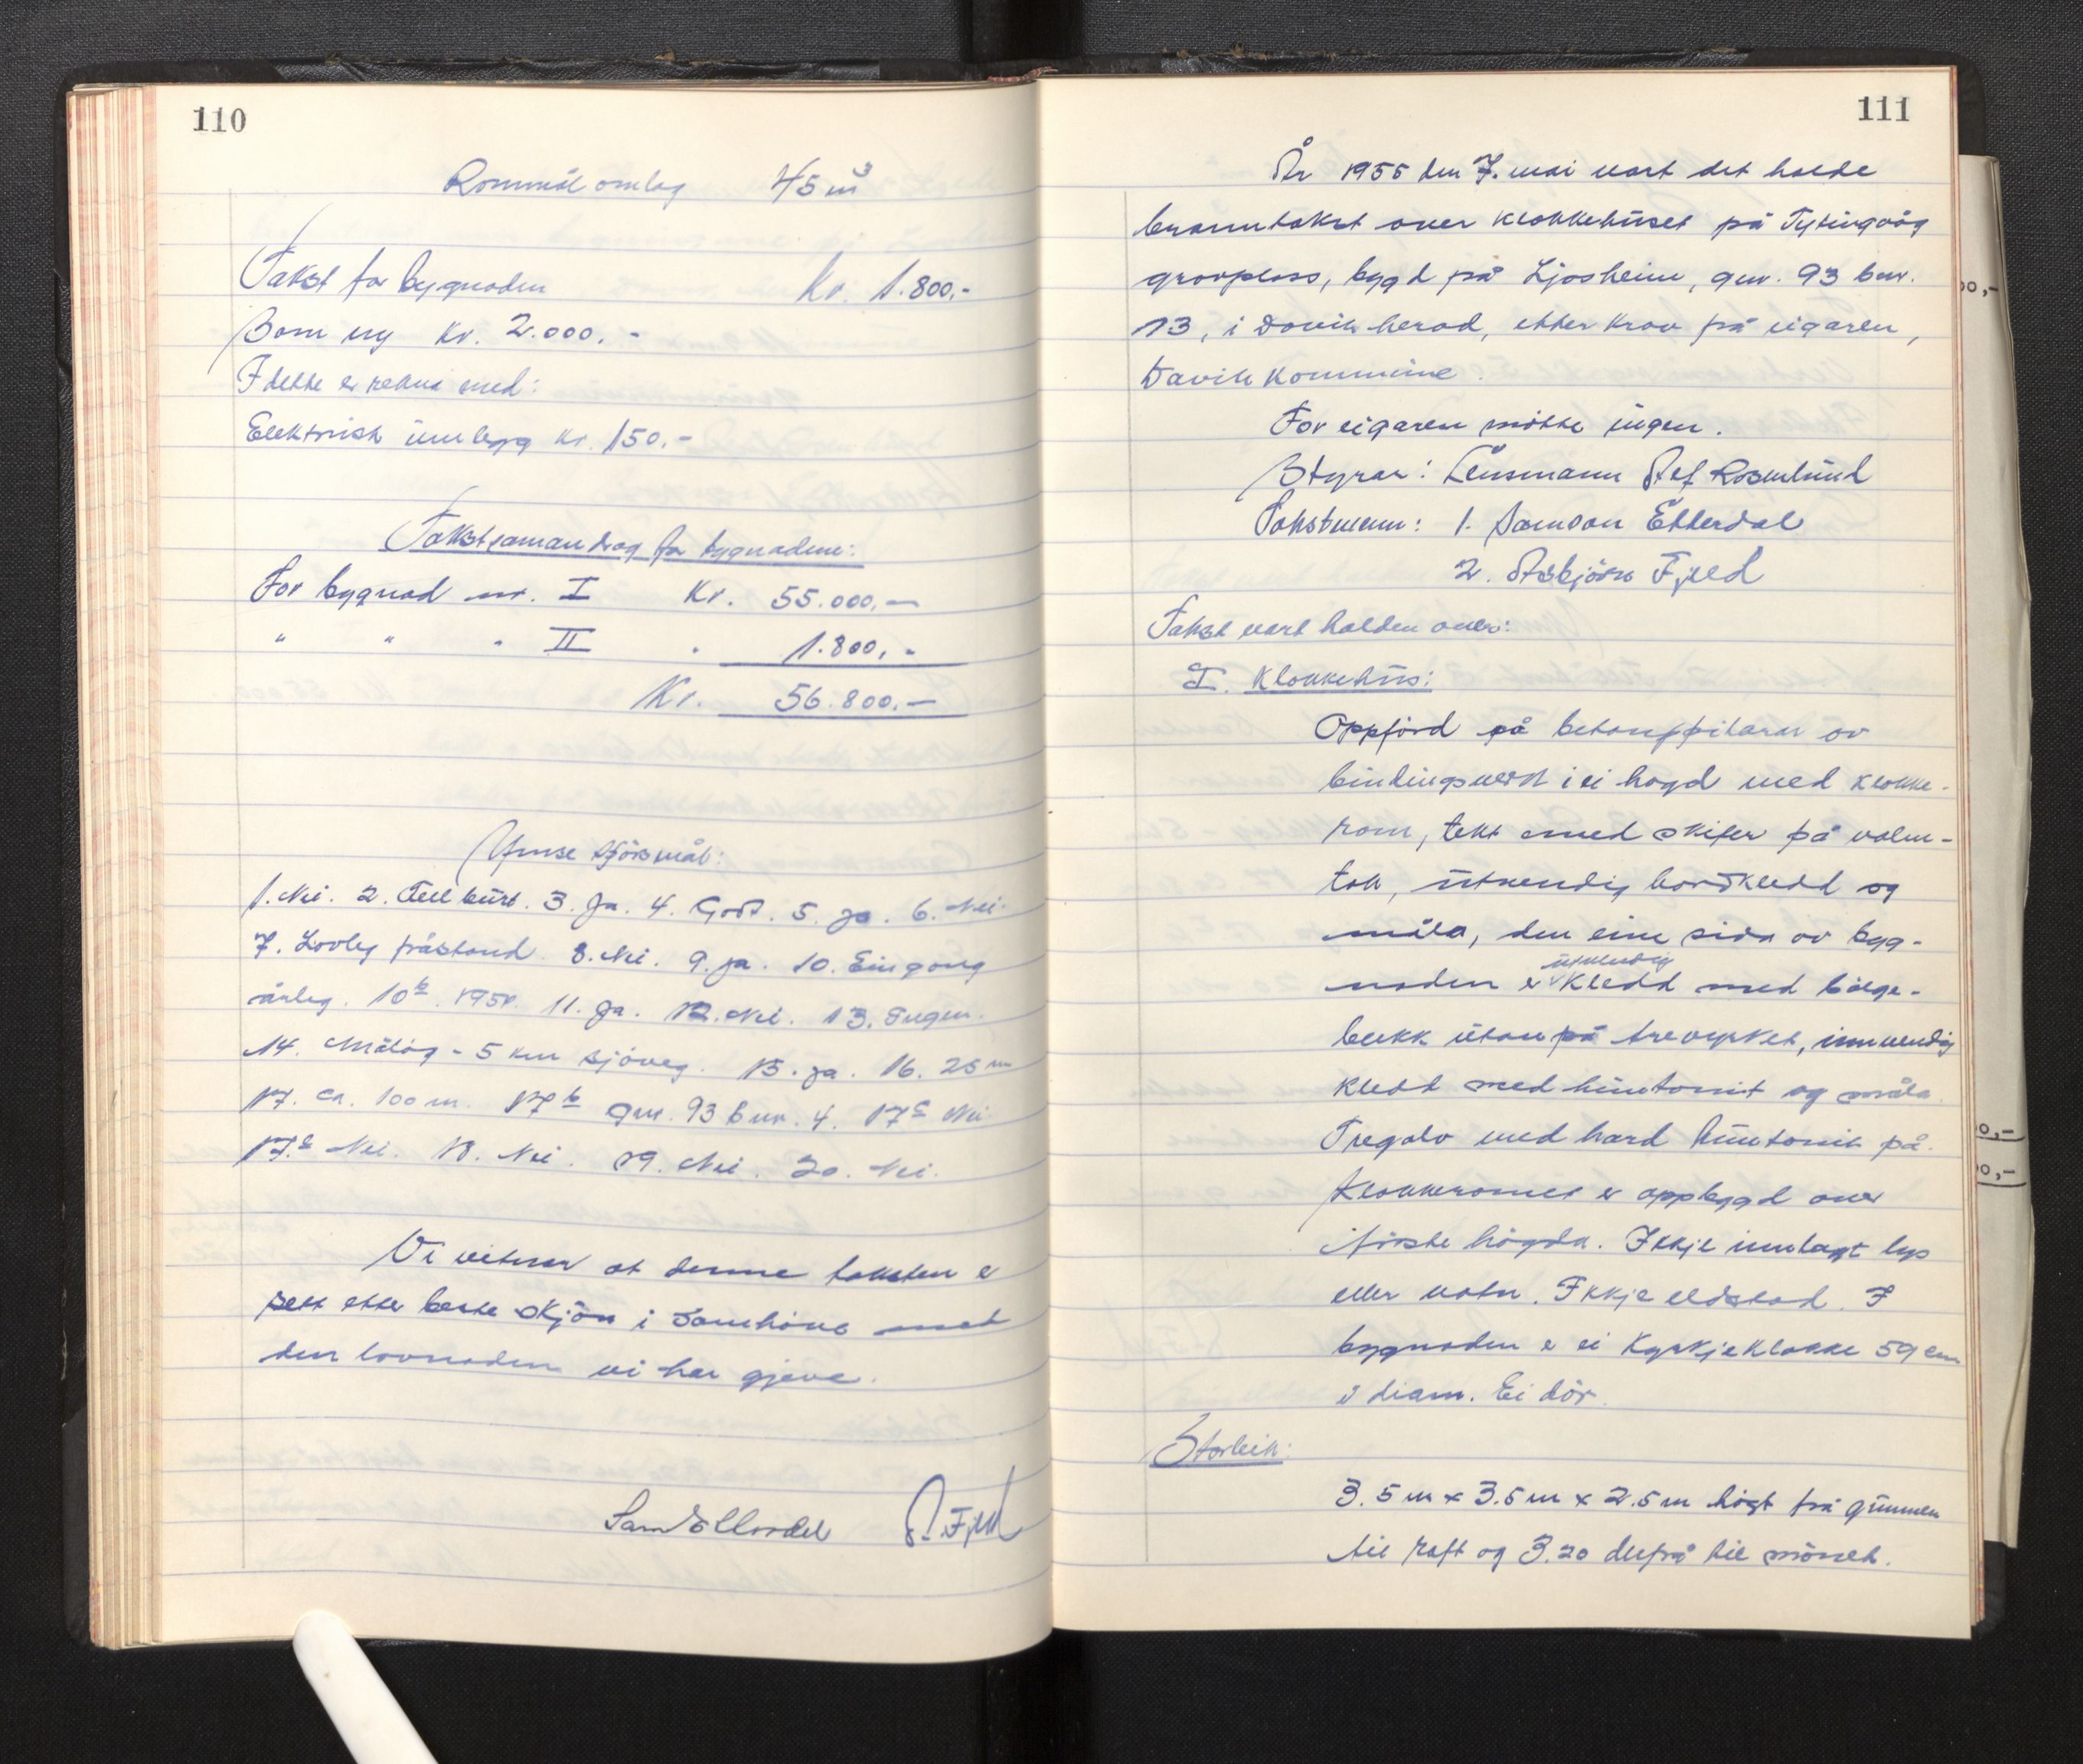 110
Rommål omlag 45 m³
Takst for bygnaden Kr. 1.800,-
Som ny kr. 2.000,-
I dette er rekna med:
Elektrisk innlegg kr. 150,-
Takstsamandrag for bygnadene:
For bygnad nr. I Kr. 55.000,-
" " " II " 1.800,-
Kr. 56.800,-
Ymse spörsmål:
1. Nei. 2. Fullbürt. 3. Ja. 4. Godt. 5. Ja. 6. Nei.
7. Lovleg fråstand. 8. Nei. 9. Ja. 10. Eingong
årleg. 10b. 1954. 11. Ja. 12. Nei. 13. Ingen.
14. Målöy - 5 km sjöveg. 15. Ja. 16. 25 m
17. Ca. 100 m. 17b gnr. 93 bnr. 4. 17c Nei
17.d Nei. 18. Nei. 19. Nei. 20. Nei.
Vi vitnar at denne taksten er
sett etter beste skjön i samhöve med
den lovnaden vi har gjeve.
Sam Etterdal A. Fjeld
111
År 1955 den 7. mai vart det halde
branntakst over klokkehuset på Tytingvåg
gravplass, bygd på Ljosheim, gnr. 93 bnr.
13, i Davik herad, etter krav frå eigaren,
Davik kommune.
For eigaren mötte ingen.
Styrar: Lensmann Alf Rosenlund
Takstmenn: 1. Samson Etterdal
2. Asbjörn Fjeld
Takst vart halden over:
I. Klokkehus:
Oppförd på betongpilarar av
bindingsverk i ei högd med klokke-
rom, tekt med skifer på valm-
tak, utvendig bordkledd og
måla, den eine sida av byg-
utvendig
naden er kledd med bölge-
blikk utan på trevyrket, innvendig
kledt med huntonit og måla.
Tregolv med hard huntonit på.
Klokkeromet er oppbygd over
först högda. Ikkje innlagt lys
eller vatn. Ikkje eldstad. I
bygnaden er ei kyrkjeklokke 59 cm
i diam. Ei dör.
Storleik:
3.5 m x 3.5 m x 2.5 m högt frå grunnen
til raft og 3.20 derfrå til mönet.